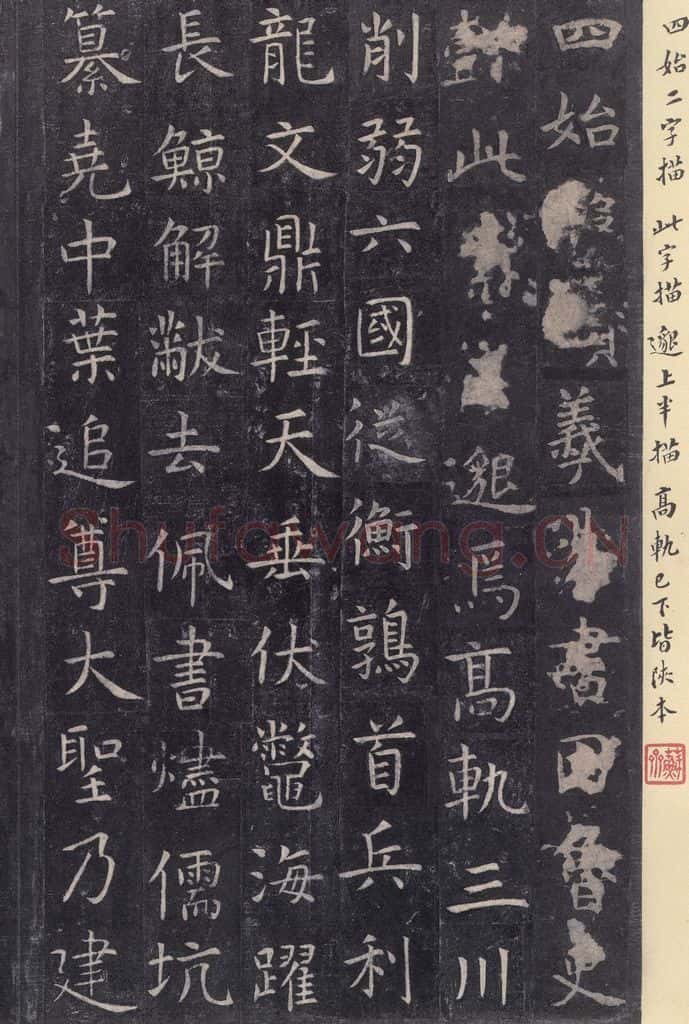 四始二字描 此字描 邈上半描 高軌已下皆陝本
四始羲書因魯史
懿此邈焉高軌三川
削弱六國從衡鶉首兵利
龍文鼎輕天垂伏鱉海躍
長鯨解黻去佩書燼儒坑
纂堯中葉追尊大聖乃建
Shufawang.CN